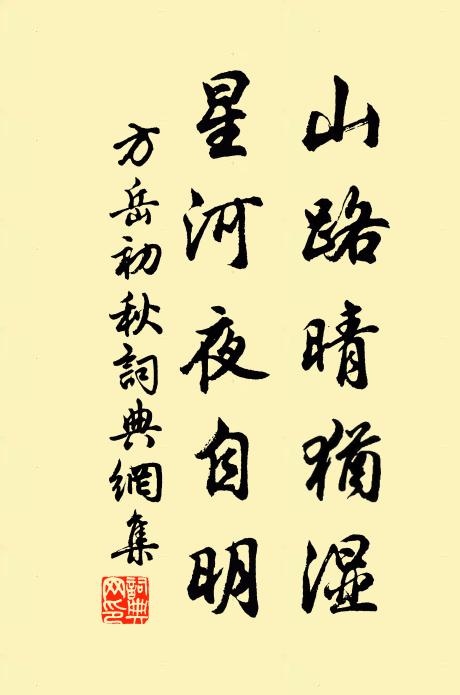 山路晴猶湿
星河夜自明
方岳初秋詞典網集
詞典
网印